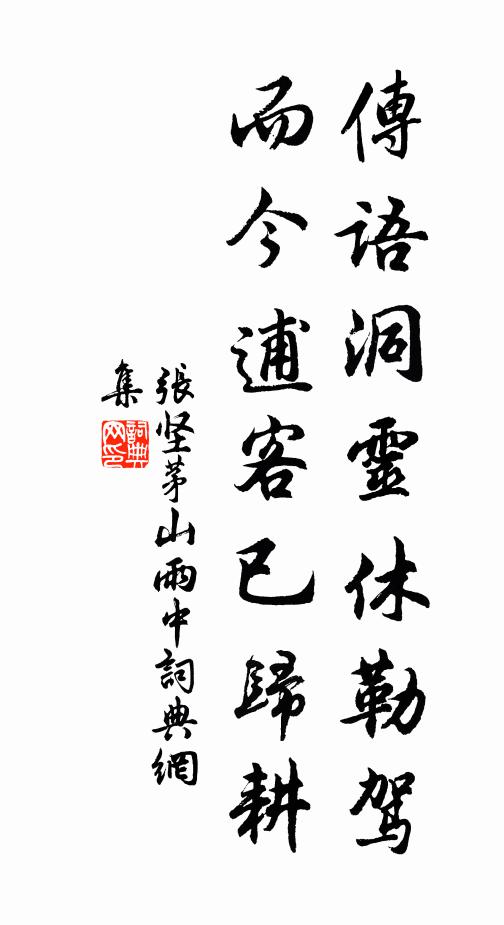 傳語洞靈休勒駕
而今逋客已歸耕
張坚茅山雨中詞典網
集
詞典网印